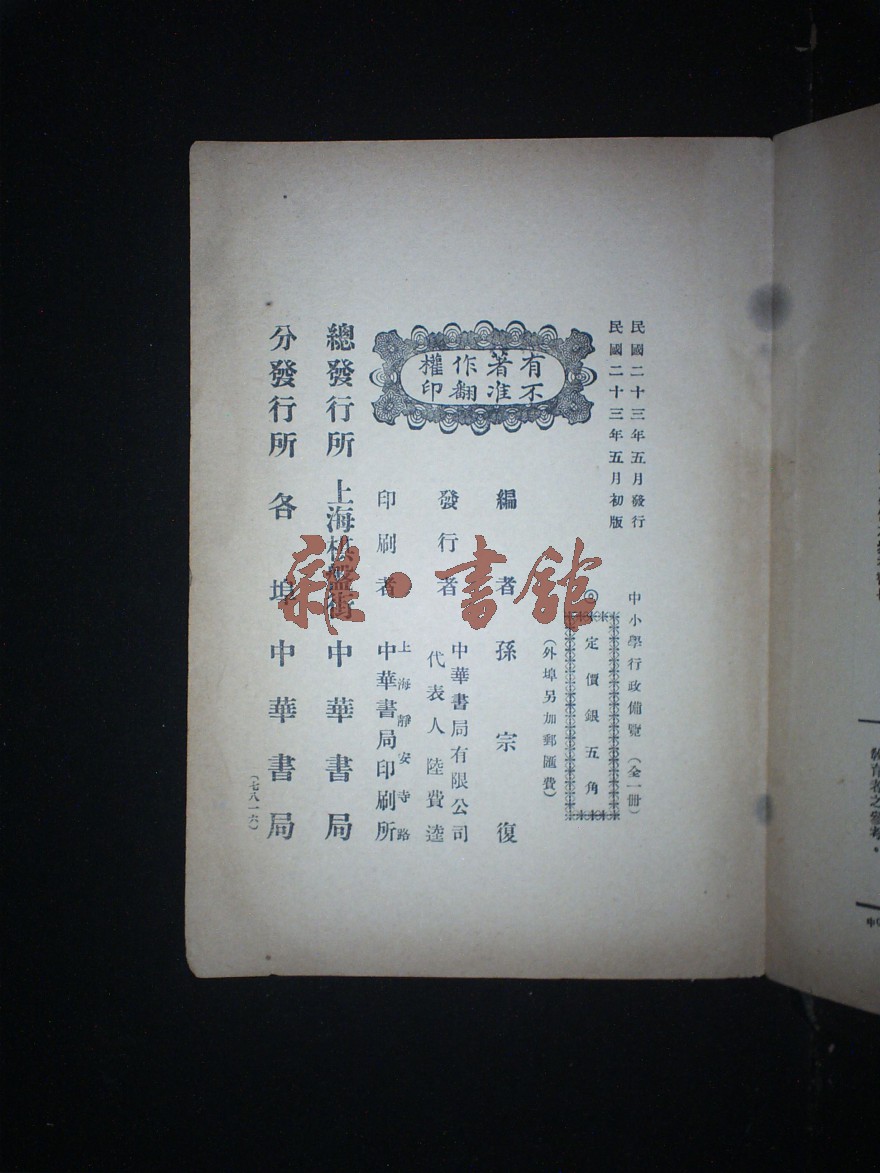 民國二十三年五月發行
民國二十三年五月初版
中小學行政備覽（全一冊）
◎定價銀五角
（外埠另加郵匯費）
有著作權
不准翻印
編者 孫宗復
發行者 中華書局有限公司
代表人陸費逵
印刷者 上海靜安寺路
中華書局印刷所
總發行所 上海棋盤街 中華書局
分發行所 各埠 中華書局
（七八一六）
雜·書館
教育者之參考。